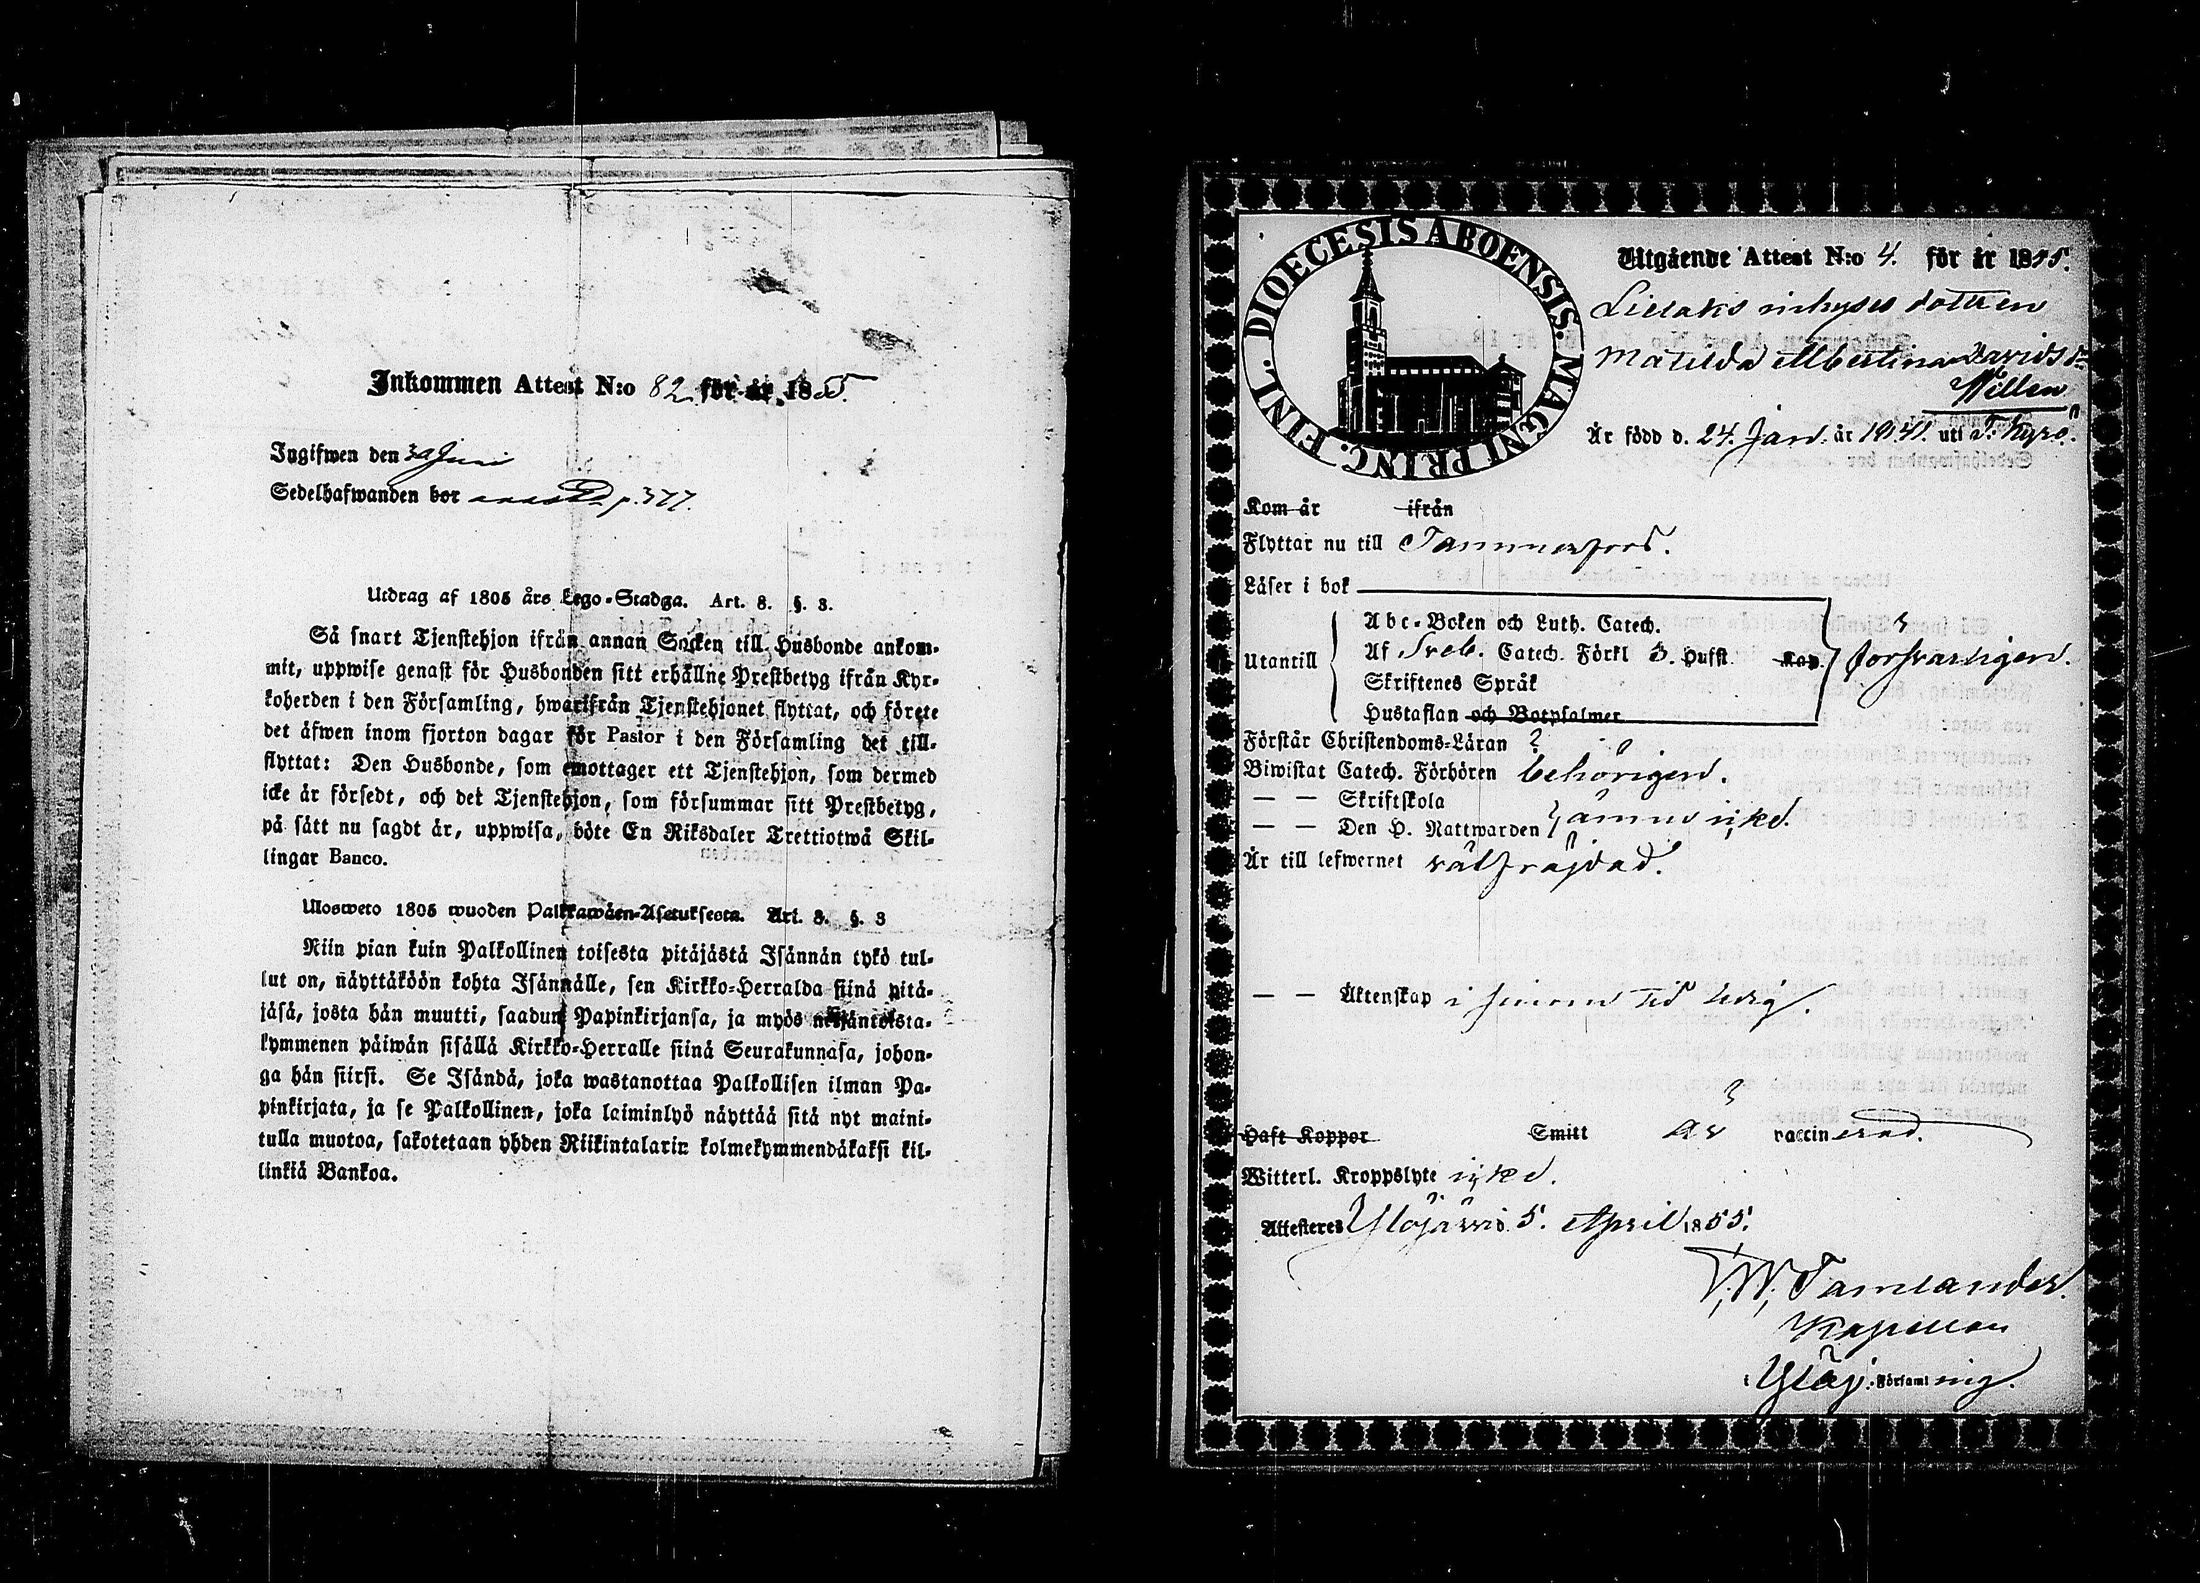 Inkommen Attest N:o 82 för år 1855.
Ingifwen den 30 Juni
Sedelhafwanden bor p. 377.
Utdrag af 1805 års Lego-Stadga. Art. 8. §. 3.
Så snart Tjenstehjon ifrån annan Socken till Husbonde ankom-
mit, uppwise genast för Husbonden sitt erhållne Prestbetyg ifrån Kyr-
koherden i den Församling, hwarifrån Tjenstehjonet flyttat, och förete
det äfwen inom fjorton dagar för Pastor i den Församling det till-
flyttat: Den Husbonde, som emottager ett Tjenstehjon, som dermed
icke är försedt, och det Tjenstehjon, som försummar sitt Prestbetyg,
på sätt nu sagdt är, uppwisa, böte En Riksdaler Trettiotwå Skil-
lingar Banco.
Ulosweto 1805 wuoden Palkkawäen-Asetuksesta. Art. 8. §. 3
Niin pian kuin Palkollinen toisesta pitäjästä Isännän tykö tul-
lut on, näyttäköön kohta Isännälle, sen Kirkko-Herralda siinä pitä-
jäsä, josta hän muutti, saadun Papinkirjansa, ja myös neljäntoista-
kymmenen päiwän sisällä Kirkko-Herralle siinä Seurakunnasa, johon-
ga hän siirsi. Se Isändä, joka wastanottaa Palkollisen ilman Pa-
pinkirjata, ja se Palkollinen, joka laiminlyö näyttää sitä nyt maini-
tulla muotoa, sakotetaan yhden Riikintalarin kolmekymmendäkaksi kil-
linkiä Bankoa.
DIOECESIS ABOENSIS. MAGNI PRINC. FINL.
Utgående Attest N:o 4. för år 1855.
inhyses dottren
Matilda Albertina Davids dr
Willen
Är född d. 24. Jan. år 1841. uti T. Kyrö.
Kom år ifrån
Flyttar nu till Tammerfors.
Läser i bok
Utantill
Abc-Boken och Luth. Catech.
Af Sveb. Catech. Förkl 3. Hufst. Kap. försvarligen.
Skriftenes Språk
Hustaflan och Botpsalmer
Förstår Christendoms-Läran
Biwistat Catech. Förhören behörigen.
— — Skriftskola
— — Den H. Nattwarden ännu icke.
Är till lefwernet välfräjdad.
— — Äktenskap i sinom tid ledig.
Haft Koppor Smitt är vaccinerad.
Witterl. Kroppslyte icke.
Attesteres Ylöjärvi d. 5. April 1855.
Kapellan
i Ylöj. Församling.